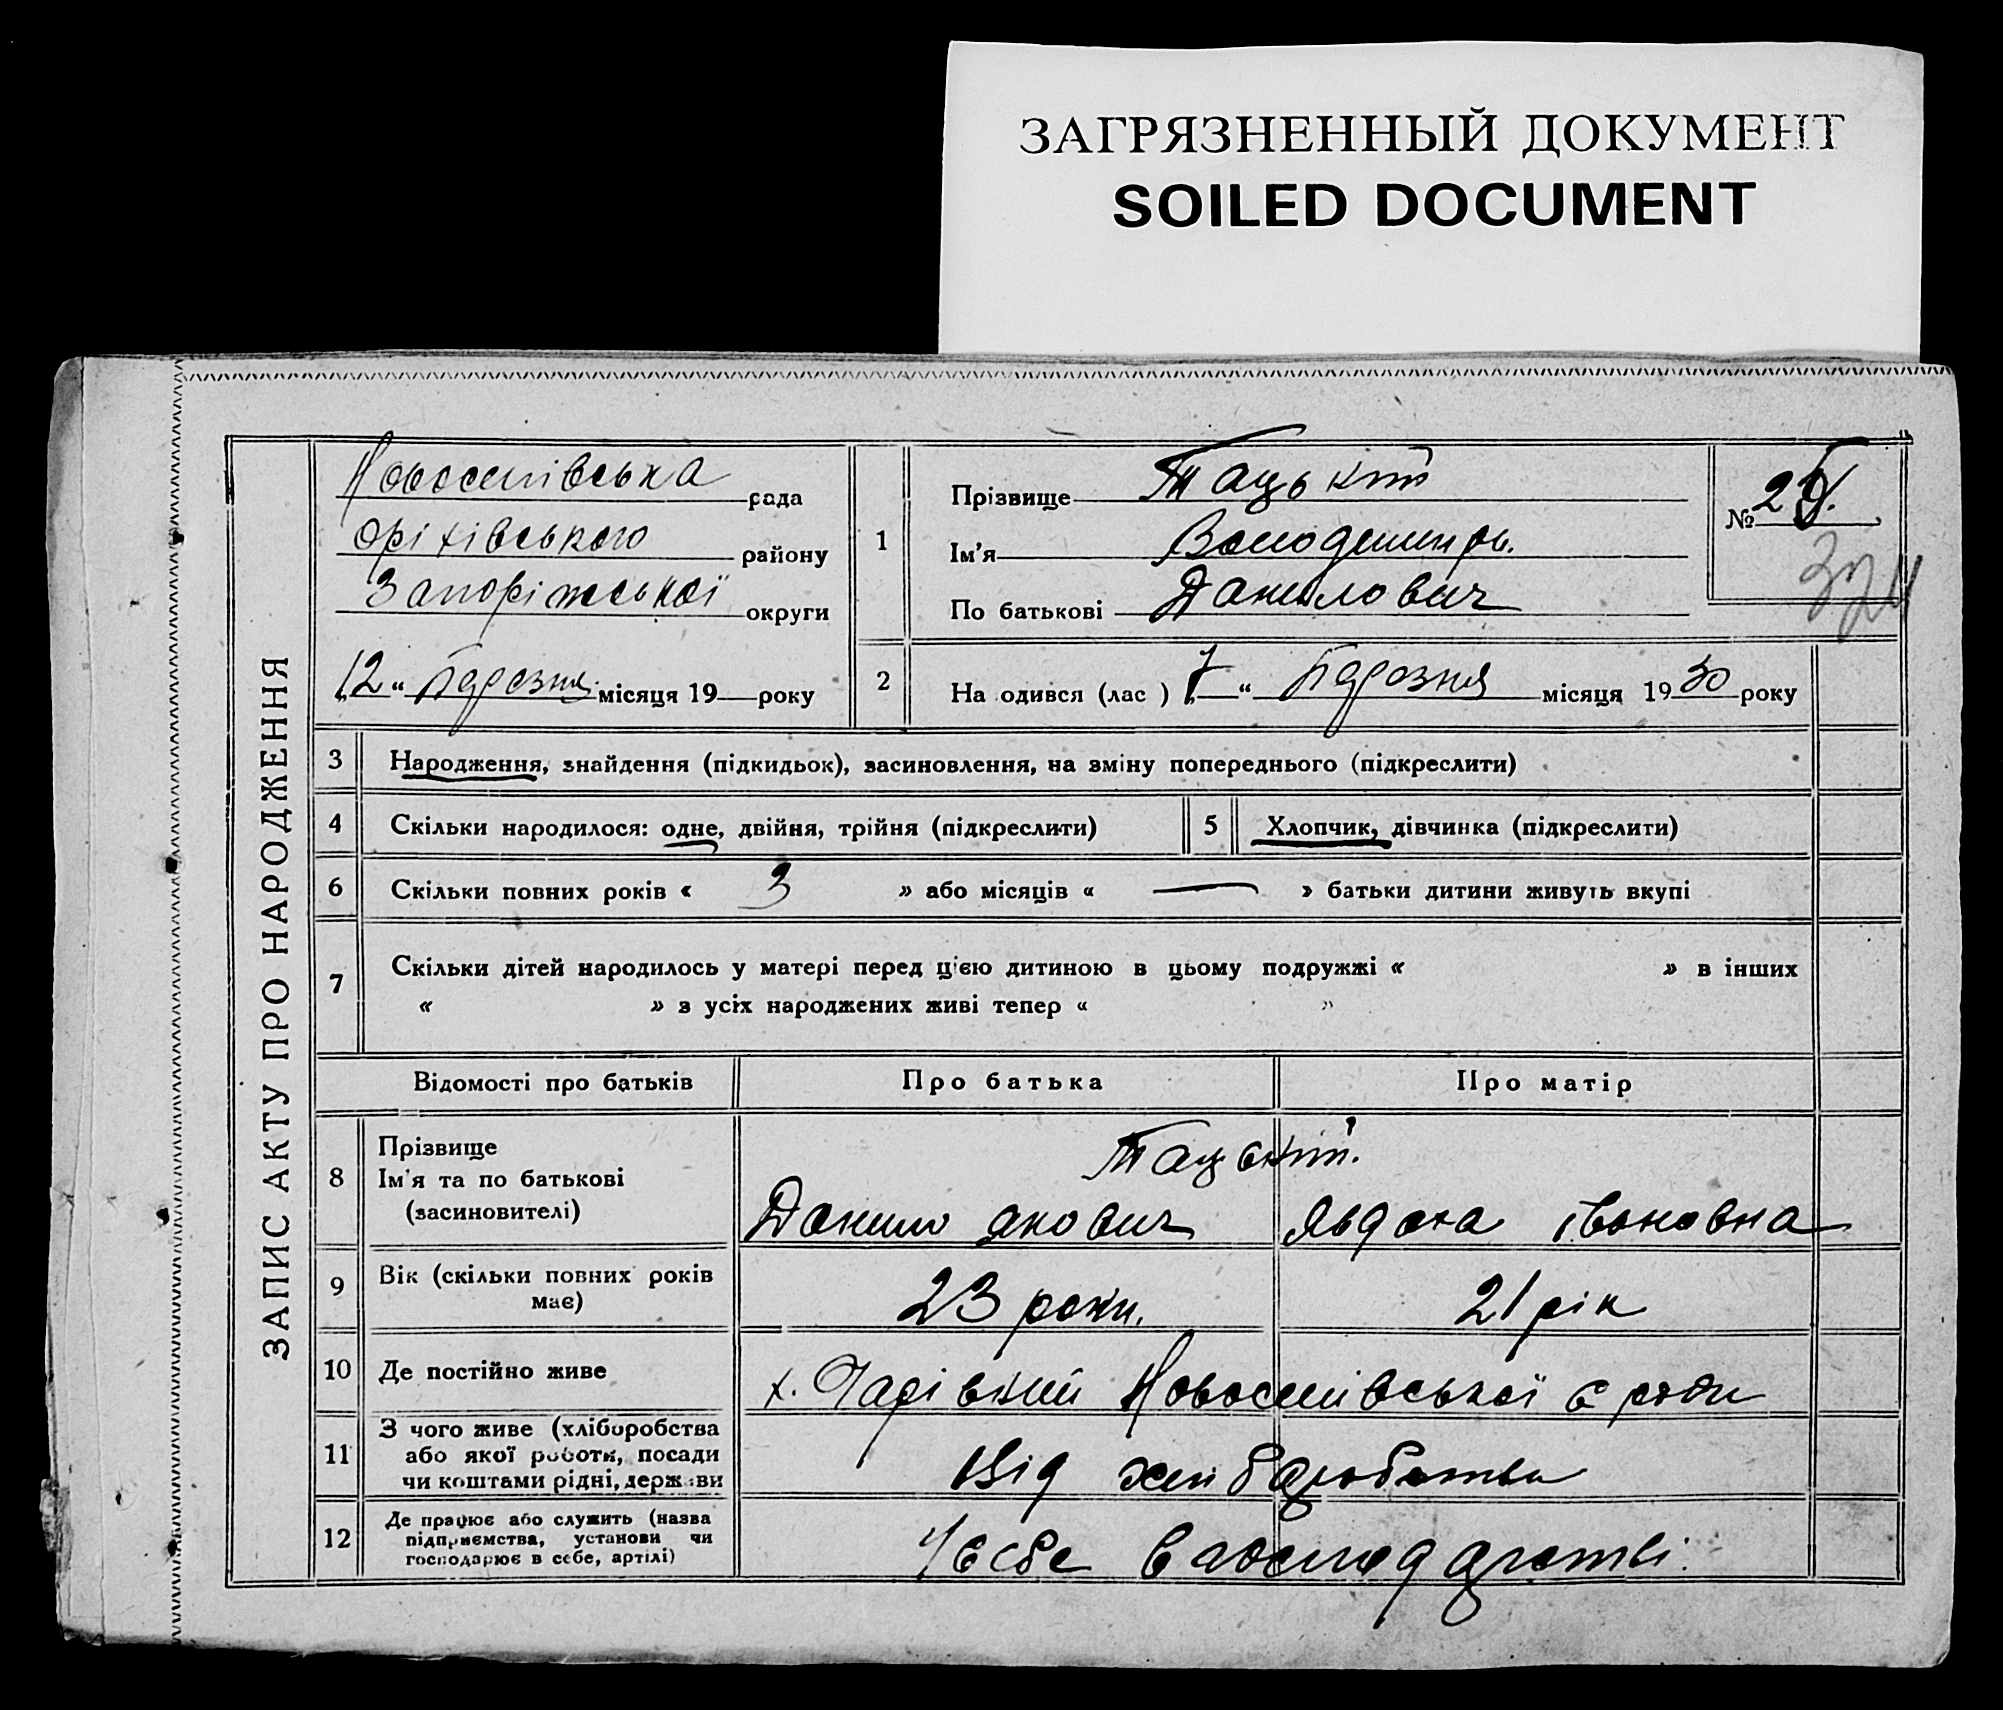 ЗАГРЯЗНЕННЫЙ ДОКУМЕНТ
SOILED DOCUMENT
ЗАПИС АКТУ ПРО НАРОДЖЕННЯ
Новоселівська рада
Оріхівського району
Запоріжської округи
„12“ Березня місяця 19 року
1
Прізвище Тацький
Ім'я Володимиръ.
По батькові Данилович
№
2
На одився (лас ) „7“ Березня місяця 1930 року
3 Народження, знайдення (підкидьок), засиновлення, на зміну попереднього (підкреслити)
4 Скільки народилося: одне, двійня, трійня (підкреслити) 5 Хлопчик, дівчинка (підкреслити)
6 Скільки повних років « 3 » або місяців « — » батьки дитини живуть вкупі
7 Скільки дітей народилось у матері перед цією дитиною в цьому подружжі « » в інших
« » з усіх народжених живі тепер « »
Відомості про батьків Про батька Про матір
8 Прізвище
Ім'я та по батькові
(засиновителі)
Тацький.
Данило Якович Явдоха Івановна
9 Вік (скільки повних років
має)
23 роки. 21 рік
10 Де постійно живе
х. Новоселівської с ради
11 З чого живе (хліборобства
або якої роботи, посади
чи коштами рідні, держави
Від хліборобства
12 Де працює або служить (назва
підприємства, установи чи
господарює в себе, артілі)
У себе в господарстві.